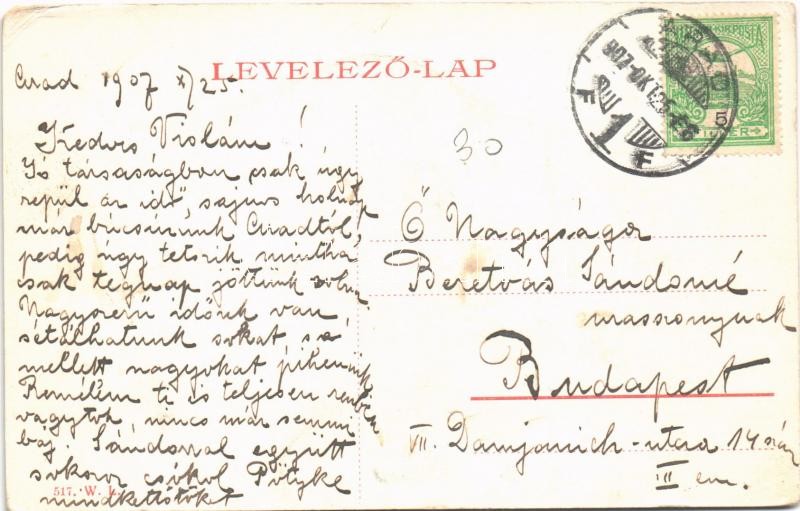 LEVELEZŐ-LAP
Arad 1907 X/25.
Kedves Vislám!
Jó társaságban csak úgy
repül az idő, sajnos holnap
már búcsúzunk Aradtól,
pedig úgy tetszik mintha
csak tegnap jöttünk volna
Nagyszerű időnk van,
sétálhatunk sokat, s a
mellett nagyokat pihenünk.
Remélem ti is teljesen rendben
vagytok, nincs már semmi
baj. Sándorral együtt
sokszor csókol Pötyke
mindkettőtöket
517. W. L.
30
ARAD
907 OK 25
5
Ő Nagysága
Beretvás Sándorné
urasszonynak
Budapest
VII. Damjanich-utca 14 szám
III em.